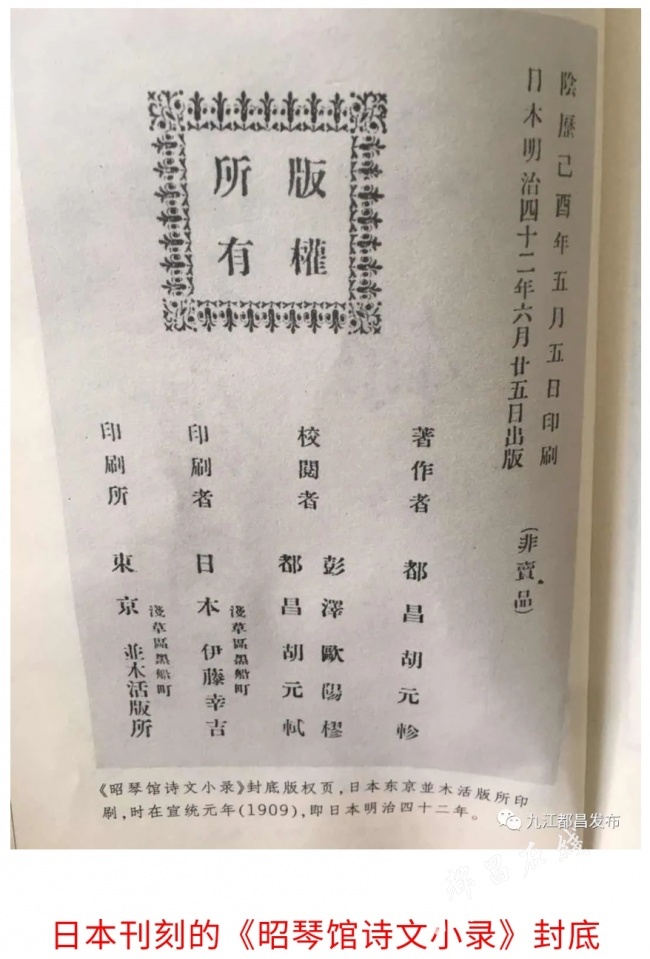 陰歷己酉年五月五日印刷
日本明治四十二年六月廿五日出版
(非賣品)
版權
所有
著作者 都昌胡元軫
校閱者 彭澤歐陽樛
都昌胡元軾
印刷者 日本 淺草區黑船町 伊藤幸吉
印刷所 東京 淺草區黑船町 並木活版所
《昭琴馆诗文小录》封底版权页,日本东京並木活版所印
刷,时在宣统元年(1909),即日本明治四十二年。
九江都昌发布
日本刊刻的《昭琴馆诗文小录》封底